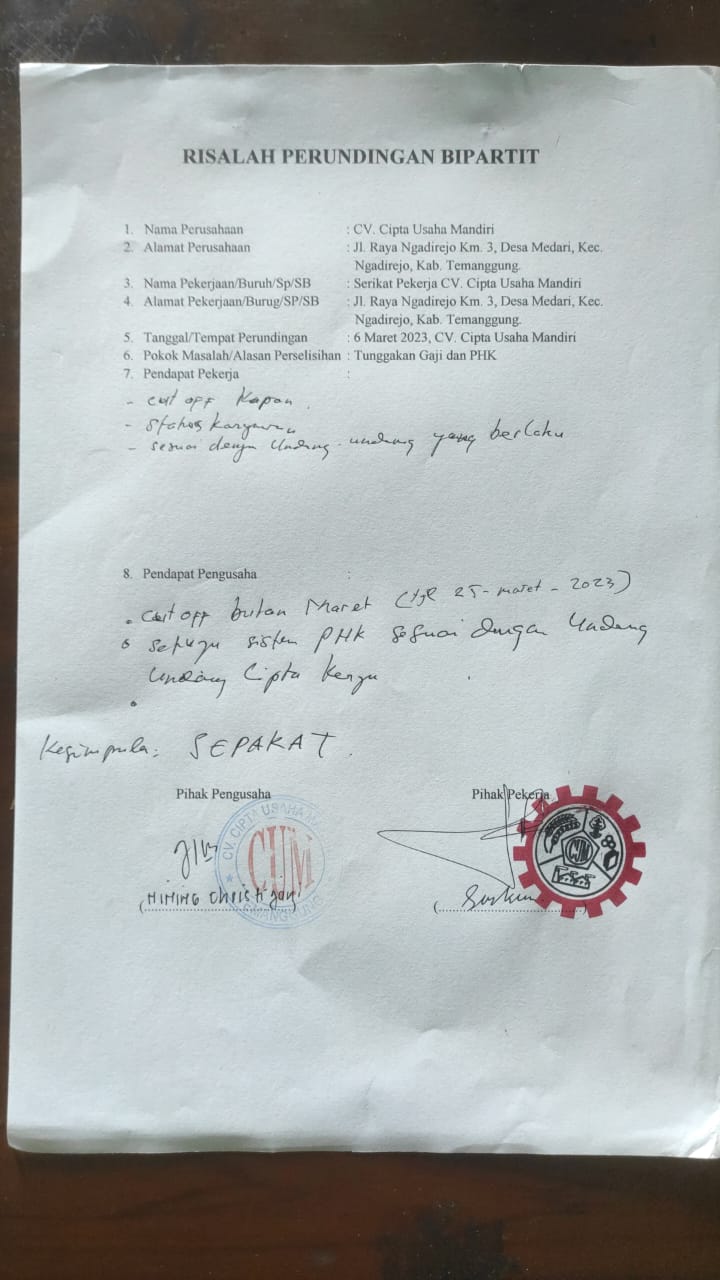 RISALAH PERUNDINGAN BIPARTIT
1. Nama Perusahaan : CV. Cipta Usaha Mandiri
2. Alamat Perusahaan : Jl. Raya Ngadirejo Km. 3, Desa Medari, Kec.
Ngadirejo, Kab. Temanggung.
3. Nama Pekerjaan/Buruh/Sp/SB : Serikat Pekerja CV. Cipta Usaha Mandiri
4. Alamat Pekerjaan/Burug/SP/SB : Jl. Raya Ngadirejo Km. 3, Desa Medari, Kec.
Ngadirejo, Kab. Temanggung.
5. Tanggal/Tempat Perundingan : 6 Maret 2023, CV. Cipta Usaha Mandiri
6. Pokok Masalah/Alasan Perselisihan : Tunggakan Gaji dan PHK
7. Pendapat Pekerja :
- cut off Kapan.
- Status Karyawan
- sesuai dengan Undang-undang yang berlaku
8. Pendapat Pengusaha :
• cut off bulan Maret (tgl 25-maret-2023)
• setuju sistem PHK sesuai dengan Undang
Undang Cipta Kerja
•
Kesimpula: SEPAKAT.
Pihak Pengusaha Pihak Pekerja
CV. CIPTA USAHA
CUM
CUM